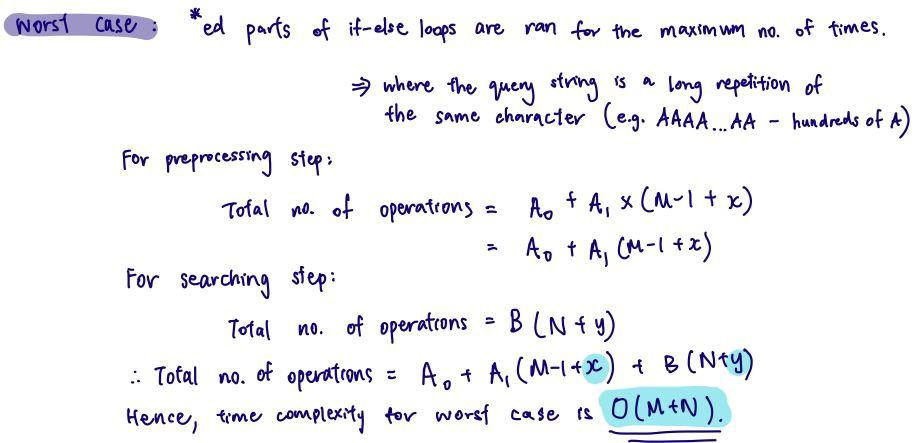 Worst case : *ed parts of if-else loops are ran for the maximum no. of times.
⇒ where the query string is a long repetition of
the same character (e.g. AAAA...AA - hundreds of A)
For preprocessing step:
Total no. of operations = A₀ + A₁ × (M-1 + x)
= A₀ + A₁ (M-1+x)
For searching step:
Total no. of operations = B (N + y)
∴ Total no. of operations = A₀ + A₁ (M-1+x) + B (N+y)
Hence, time complexity for worst case is O(M+N).